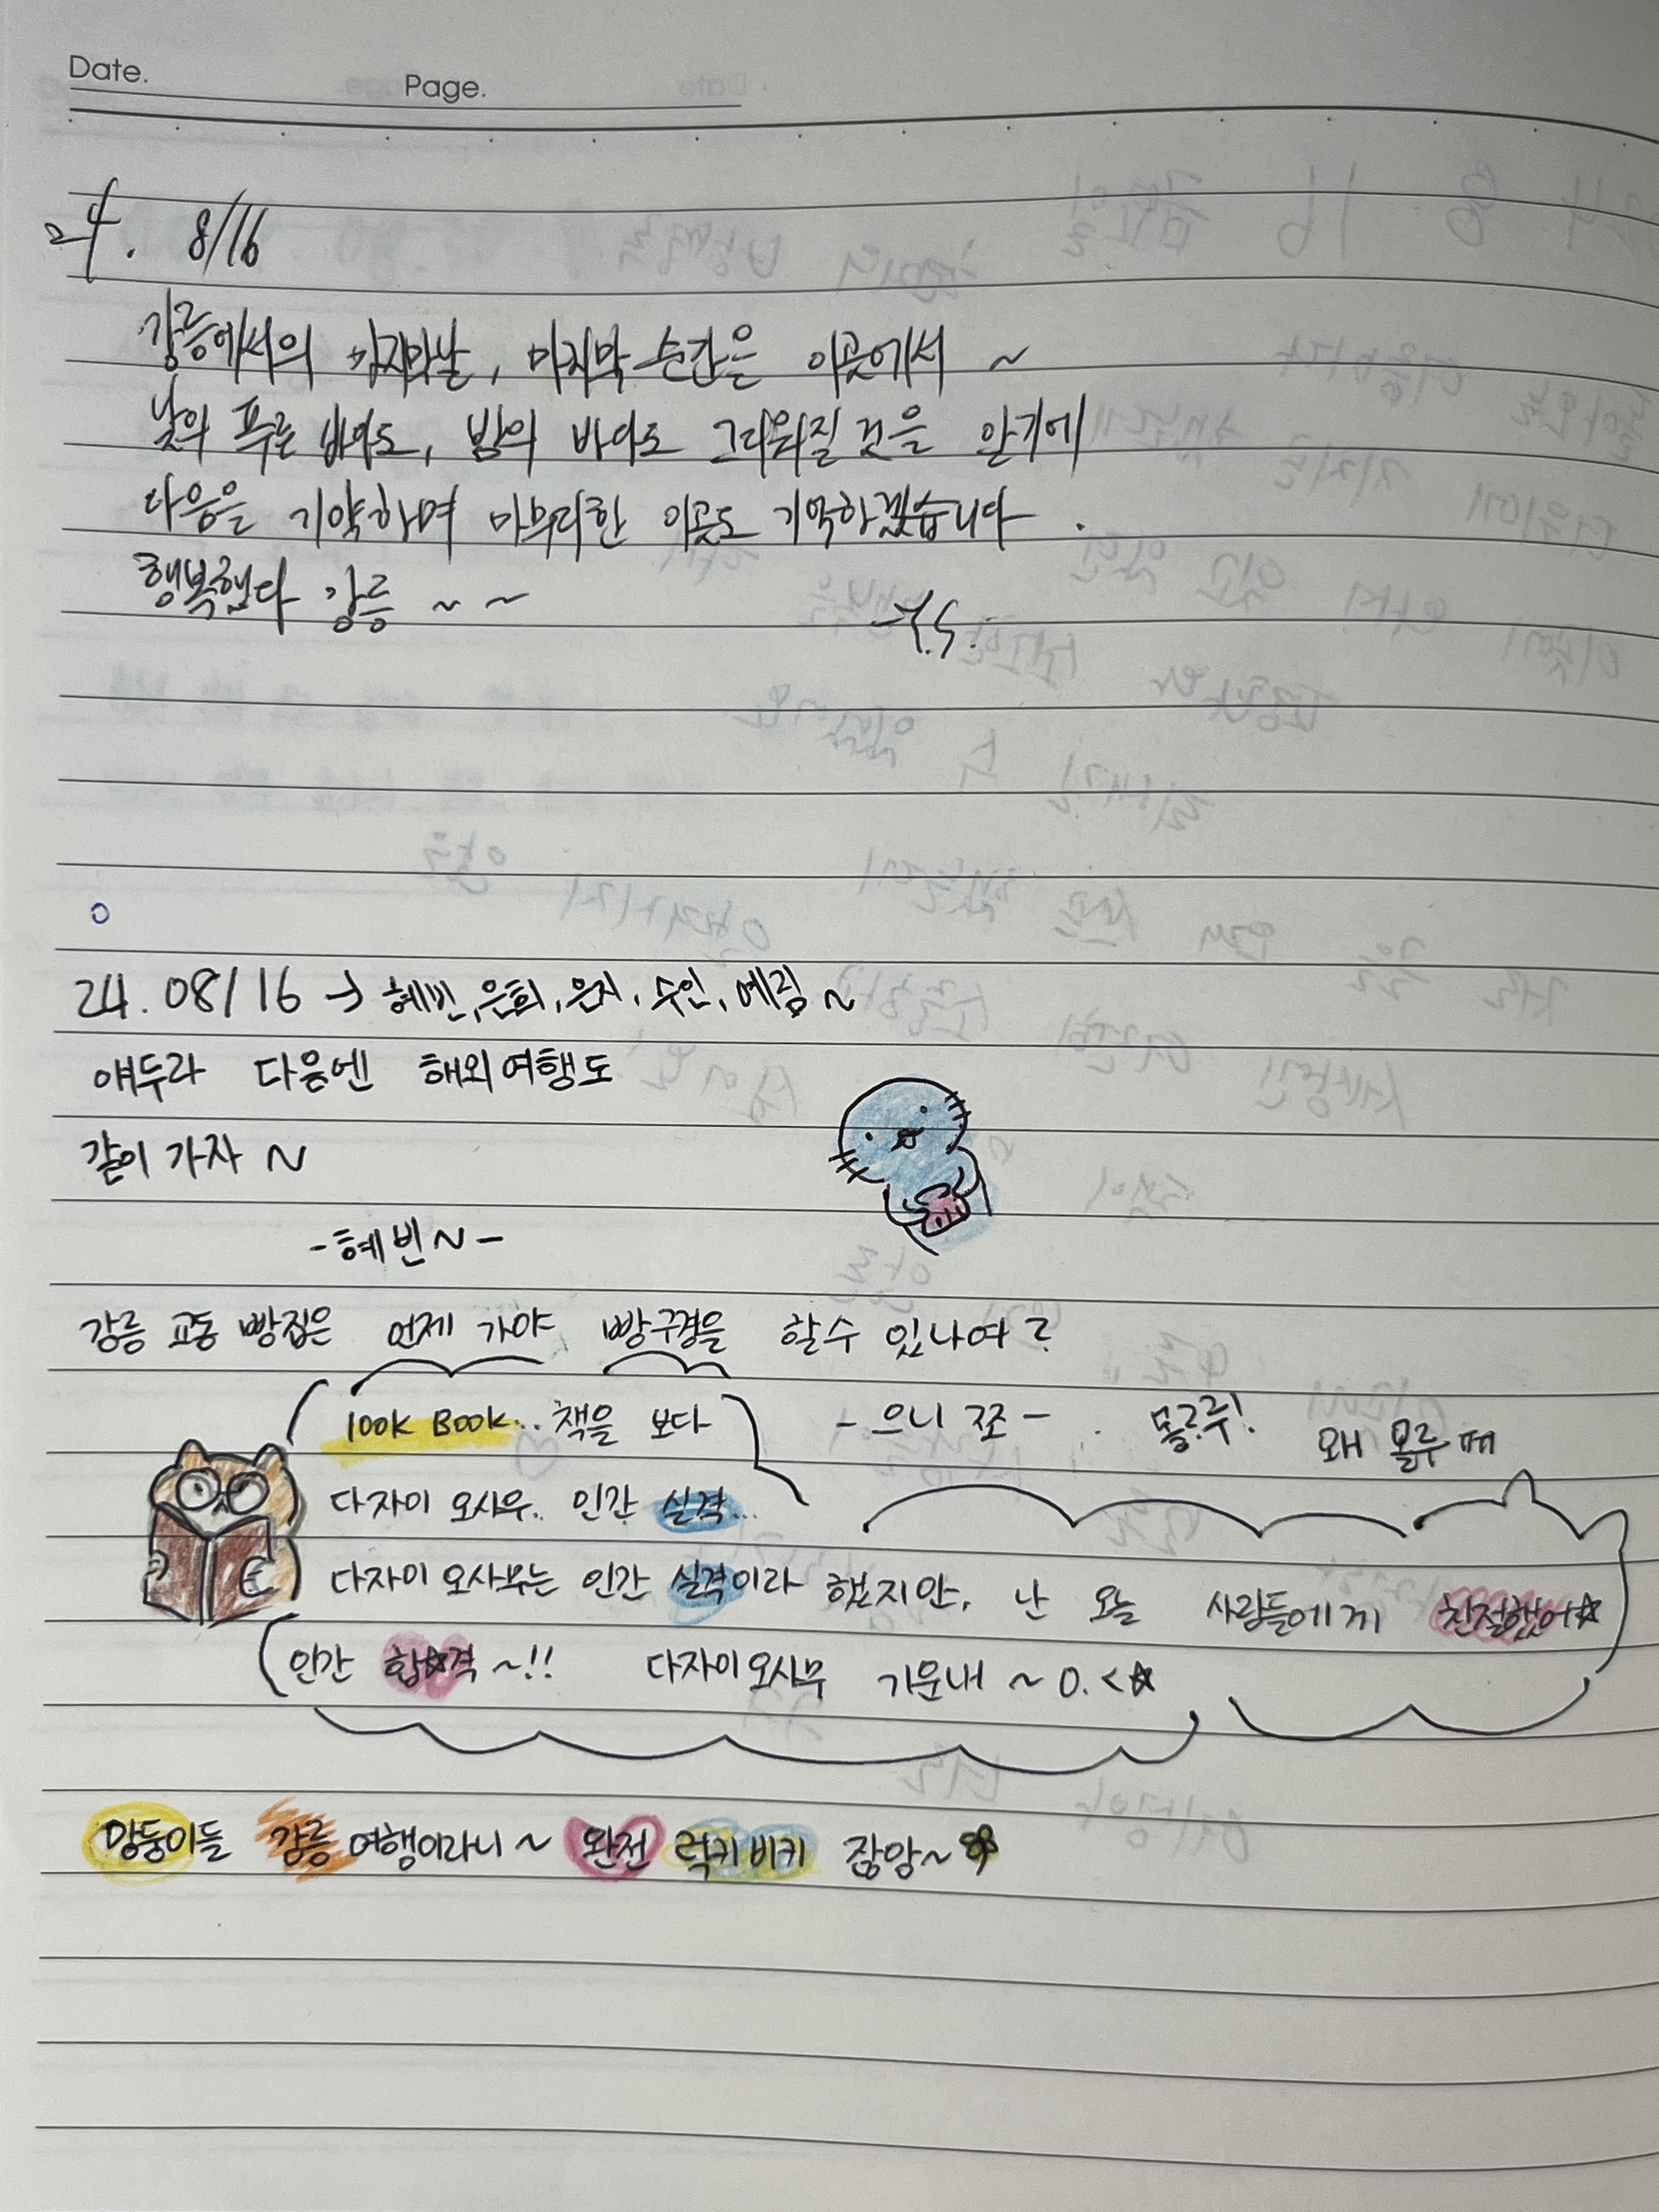 Date.
Page.
24. 8/16
강릉에서의 마지막날, 마지막 순간은 이곳에서 ~
낮의 푸른 바다도, 밤의 바다도 그리워질 것을 알기에
다음을 기약하며 마무리한 이곳도 기억하겠습니다.
행복했다 강릉 ~ ~
24. 08/16 → 혜빈, 은희, 은지, 수인, 예림 ~
얘두라 다음엔 해외여행도
같이 가자 ~
- 혜빈~ -
강릉 교동 빵집은 언제 가야 빵구경을 할수 있나여?
- 으니 쪼 - 몰?루! 왜 몰루
100K BOOK.. 책을 보다
다자이 오사무.. 인간 실격...
다자이 오사무는 인간 실격이라 했지만, 난 오늘 사람들에게 친절했어☆
인간 합☆격 ~!! 다자이오사무 기운내 ~ 0.<☆
망둥이들 강릉 여행이라니 ~ 완전 럭키비키 잖앙~